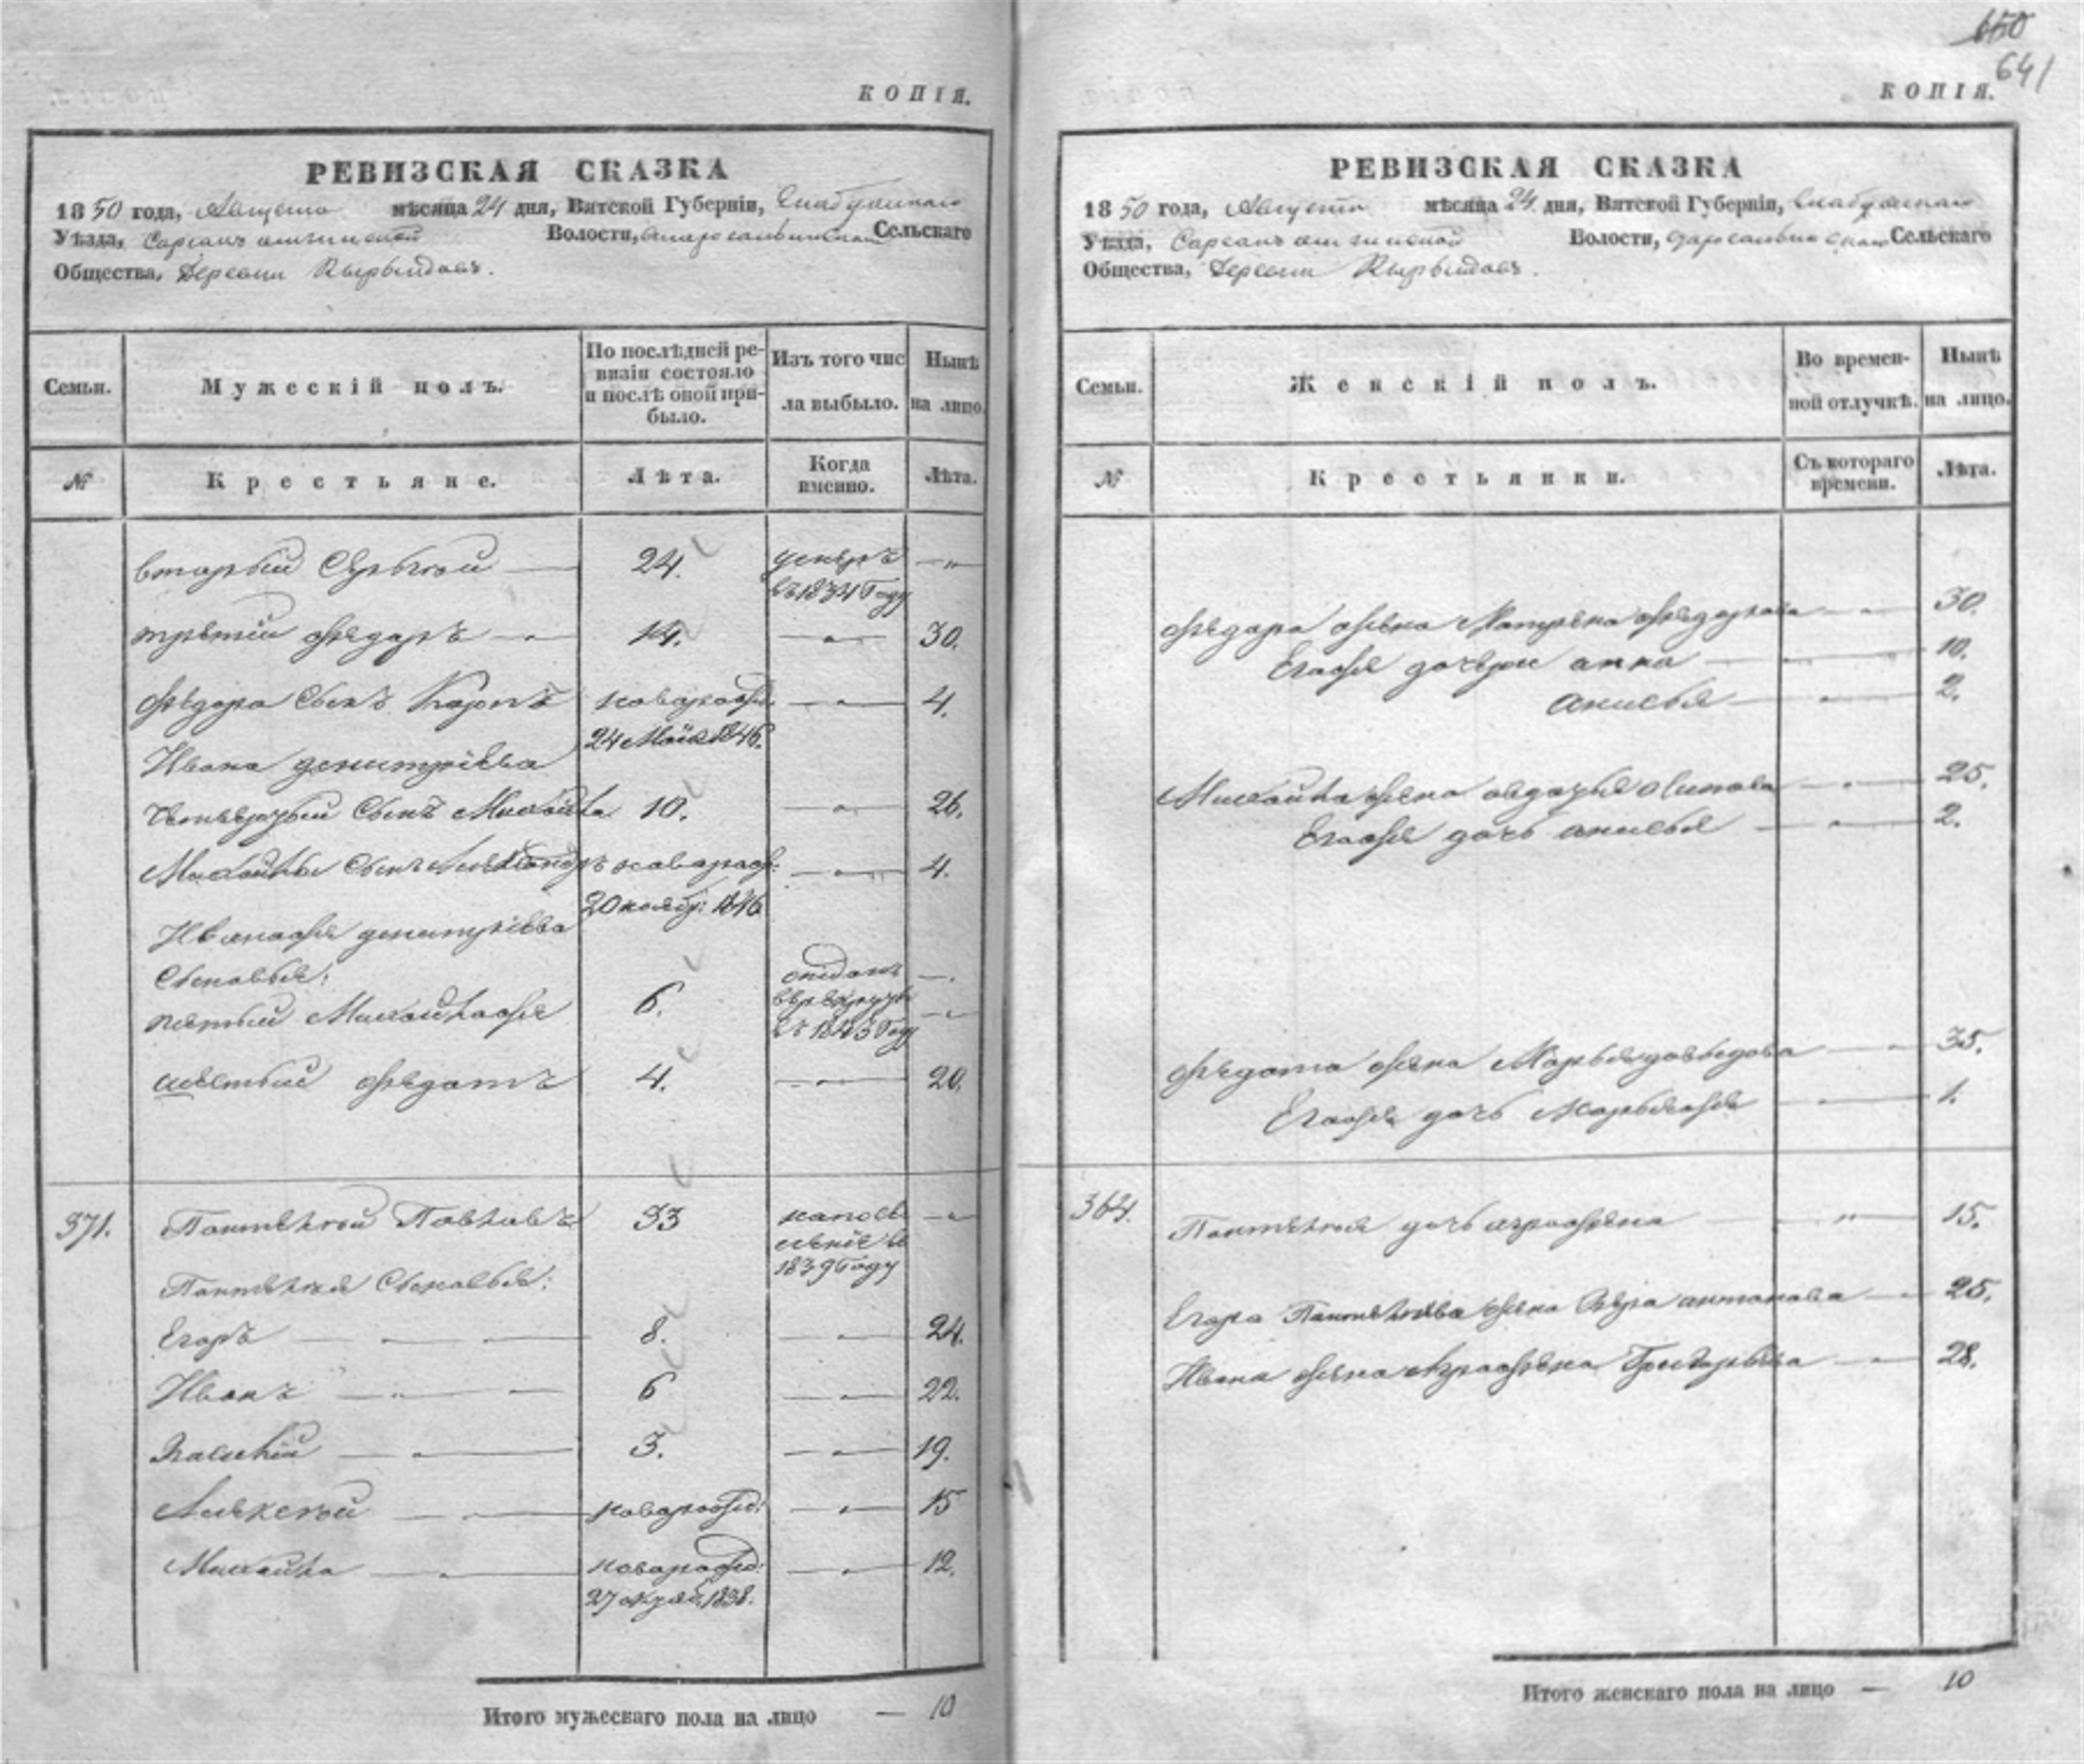 650
641
КОПІЯ.
РЕВИЗСКАЯ СКАЗКА
1850 года, Августа мѣсяца 24 дня, Вятской Губерніи, Елабужскаго
Уѣзда, Волости, Сельскаго
Общества, Деревни
Семьи.
Мужескій полъ.
По послѣдней ре-
визіи состояло
и послѣ оной при-
было.
Изъ того чис
ла выбыло.
Нынѣ
на лицо.
№
Крестьяне.
Лѣта.
Когда
именно.
Лѣта.
вторый Сергѣй — 24. умеръ — „ —
въ 1834 Году
третій Федоръ — „ — 14. — „ — 30.
Федора Сынъ Карпъ новорож. — „ — 4.
24 Мая 1846.
Ивана Дмитріева
четвертый Сынъ Михайла 10. — „ — 26.
Михайлы Сынъ Александръ новорож: — „ — 4.
20 нояб: 1846
Ивана же Дмитріева
Сыновья:
пятый Михайла же 6. отданъ
въ рекруты
въ 1843 Году
шестый Федотъ 4. — „ — 20.
371. Пантелей Павловъ 33 — „ —
1839 Году
Пантелея Сыновья:
Егоръ — 8. — „ — 24.
Иванъ — „ — 6 — „ — 22.
Василій — „ — 3. — „ — 19.
Алексей — „ — новорож: — „ — 15
Михайла — „ — новорож: — „ — 12.
27 1838.
Итого мужескаго пола на лицо — 10
КОПІЯ.
РЕВИЗСКАЯ СКАЗКА
1850 года, Августа мѣсяца 24 дня, Вятской Губерніи, Елабужскаго
Уѣзда, Волости, Сельскаго
Общества, Деревни
Семьи.
Женскій полъ.
Во времен-
ной отлучкѣ.
Нынѣ
на лицо.
№
Крестьянки.
Съ котораго
времени.
Лѣта.
Федора жена Матрена Федорова — „ — 30.
Его же дочери Анна — „ — 10.
Анисья — „ — 2.
Михайла жена Авдотья — „ — 25.
Его же дочь Анисья — „ — 2.
Федота жена Марья Давыдова — „ — 35.
Его же дочь Марья же — „ — 1.
364. Пантелея дочь Аграфена — „ — 15.
Егора Пантелеева жена Вера Антонова — 25.
Ивана жена Аграфена Григорьева — „ — 28.
Итого женскаго пола на лицо — 10